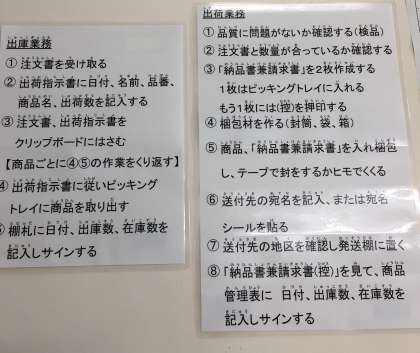 出庫業務
① 注文書を受け取る
② 出荷指示書に日付、名前、品番、
商品名、出荷数を記入する
③ 注文書、出荷指示書を
クリップボードにはさむ
【商品ごとに④⑤の作業をくり返す】
④ 出荷指示書に従いピッキング
トレイに商品を取り出す
⑤ 棚札に日付、出庫数、在庫数を
記入しサインする
出荷業務
① 品質に問題がないか確認する(検品)
② 注文書と数量が合っているか確認する
③ 「納品書兼請求書」を2枚作成する
1枚はピッキングトレイに入れる
もう1枚には(控)を押印する
④ 梱包材を作る(封筒、袋、箱)
⑤ 商品、「納品書兼請求書」を入れ梱包
し、テープで封をするかヒモでくくる
⑥ 送付先の宛名を記入、または宛名
シールを貼る
⑦ 送付先の地区を確認し発送棚に置く
⑧ 「納品書兼請求書(控)」を見て、商品
管理表に 日付、出庫数、在庫数を
記入しサインする